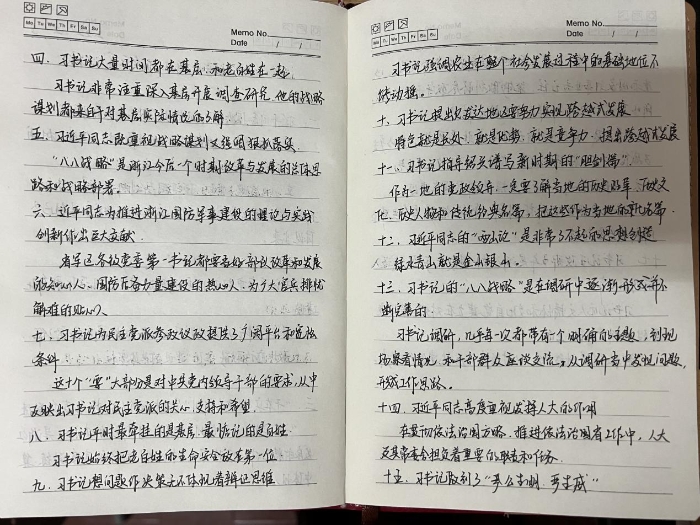 Memo No.
Mo Tu We Th Fr Sa Su
Date / /
四、习书记大量时间都在基层,和老百姓在一起
习书记非常注重深入基层开展调查研究,他的战略
谋划都来自对基层实际情况的了解
五、习近平同志既重视战略谋划又强调狠抓落实
“八八战略”是浙江今后一个时期改革与发展的总体思
路和战略部署。
六、习近平同志为推进浙江国防军事建设的理论与实践
创新作出巨大贡献.
省军区各级党委第一书记都要当好部队改革和发展
的知心人、国防后备力量建设的热心人、为广大官兵排忧
解难的贴心人、
七、习书记为民主党派参政议政提供了广阔平台和宽松
条件
这十个“要”大部分是对中共党内领导干部的要求,从中
反映出习书记对民主党派的关心、支持和希望
八、习书记平时最牵挂的是基层、最惦记的是百姓
习书记始终把老百姓的生命安全放在第一位
九、习书记想问题作决策无不体现着辩证思维
Memo No.
Mo Tu We Th Fr Sa Su
Date / /
习书记强调农业在整个社会发展过程中的基础地位不
能动摇。
十、习书记提出欠发达地区要努力实现跨越式发展
特色就是长处、就是优势、就是竞争力,提出跨越式发展
十一、习书记指导绍兴谱写新时期的“胆剑篇”
作为一地的党政领导,一定要了解当地的历史沿革、历史文
化、历史人物和传统经典名篇,把这些作为当地的
十二、习近平同志的“两山论”是非常了不起的思想创造
绿水青山就是金山银山。
十三、习书记的“八八战略”是在调研中逐渐形成并不
断完善的.
习书记调研,几乎每一次都带有一个明确的主题,到现
场察看情况,和干部群众座谈交流,从调研当中发现问题,
形成工作思路。
十四、习近平同志高度重视发挥人大的作用
在贯彻依法治国方略、推进依法治省工作中,人大
及其常委会担负着重要的职责和任务.
十五、习书记做到了“干么去州、要去成”